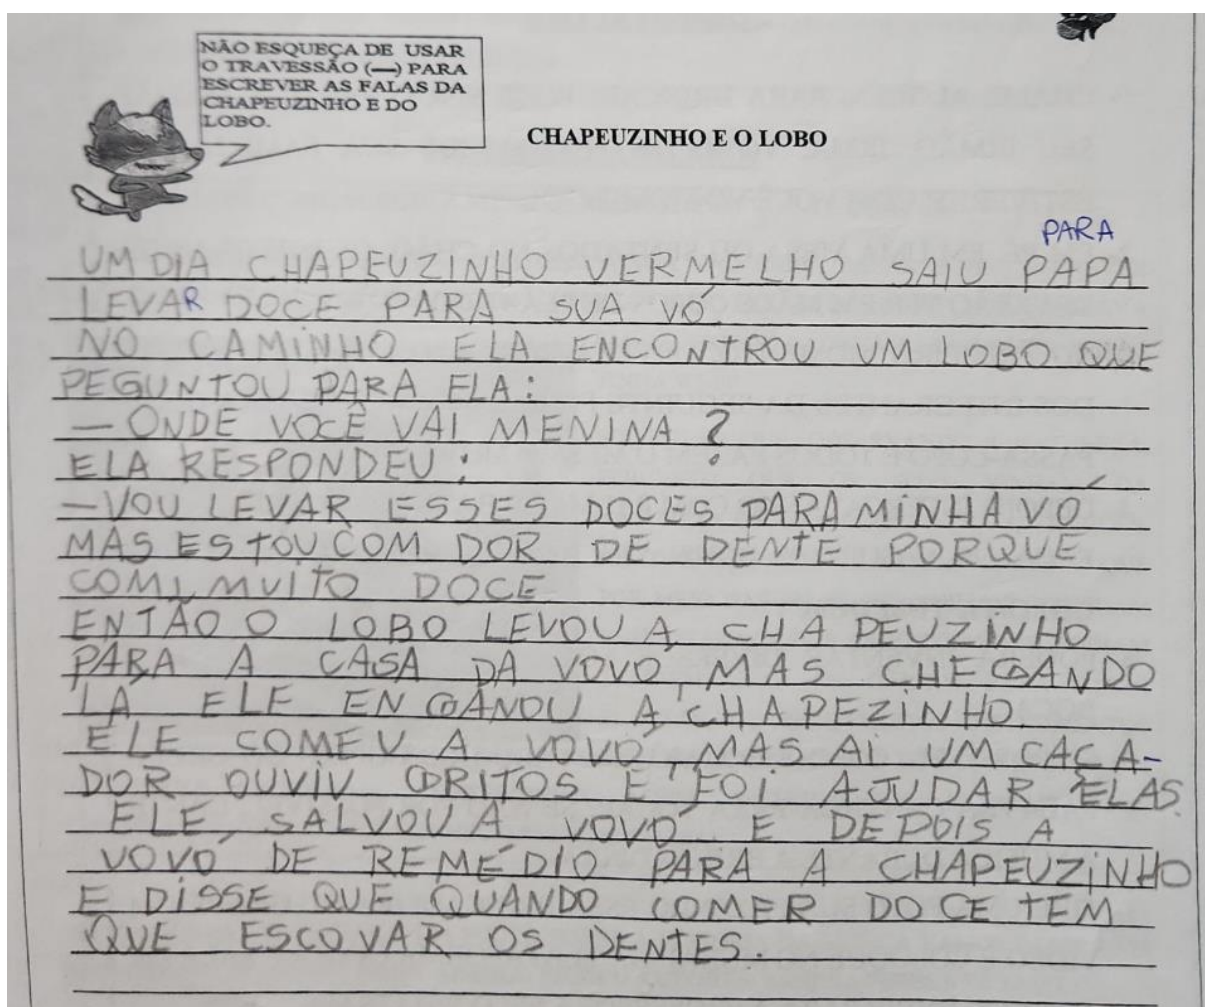 NÃO ESQUEÇA DE USAR
O TRAVESSÃO (—) PARA
ESCREVER AS FALAS DA
CHAPEUZINHO E DO
LOBO.
CHAPEUZINHO E O LOBO
PARA
UM DIA CHAPEUZINHO VERMELHO SAIU PAPA
LEVAR DOCE PARA SUA VÓ.
NO CAMINHO ELA ENCONTROU UM LOBO QUE
PEGUNTOU PARA ELA:
— ONDE VOCÊ VAI MENINA?
ELA RESPONDEU:
— VOU LEVAR ESSES DOCES PARA MINHA VÓ
MAS ESTOU COM DOR DE DENTE PORQUE
COMI MUITO DOCE
ENTÃO O LOBO LEVOU A CHAPEUZINHO
PARA A CASA DA VOVO, MAS CHEGANDO
LÁ ELE ENGANOU A CHAPEZINHO
ELE COMEU A VOVÓ, MAS AI UM CAÇA-
DOR OUVIU GRITOS E FOI AJUDAR ELAS.
ELE, SALVOU A VOVÓ E DEPOIS A
VOVÓ DE REMÉDIO PARA A CHAPEUZINHO
E DISSE QUE QUANDO COMER DOCE TEM
QUE ESCOVAR OS DENTES.